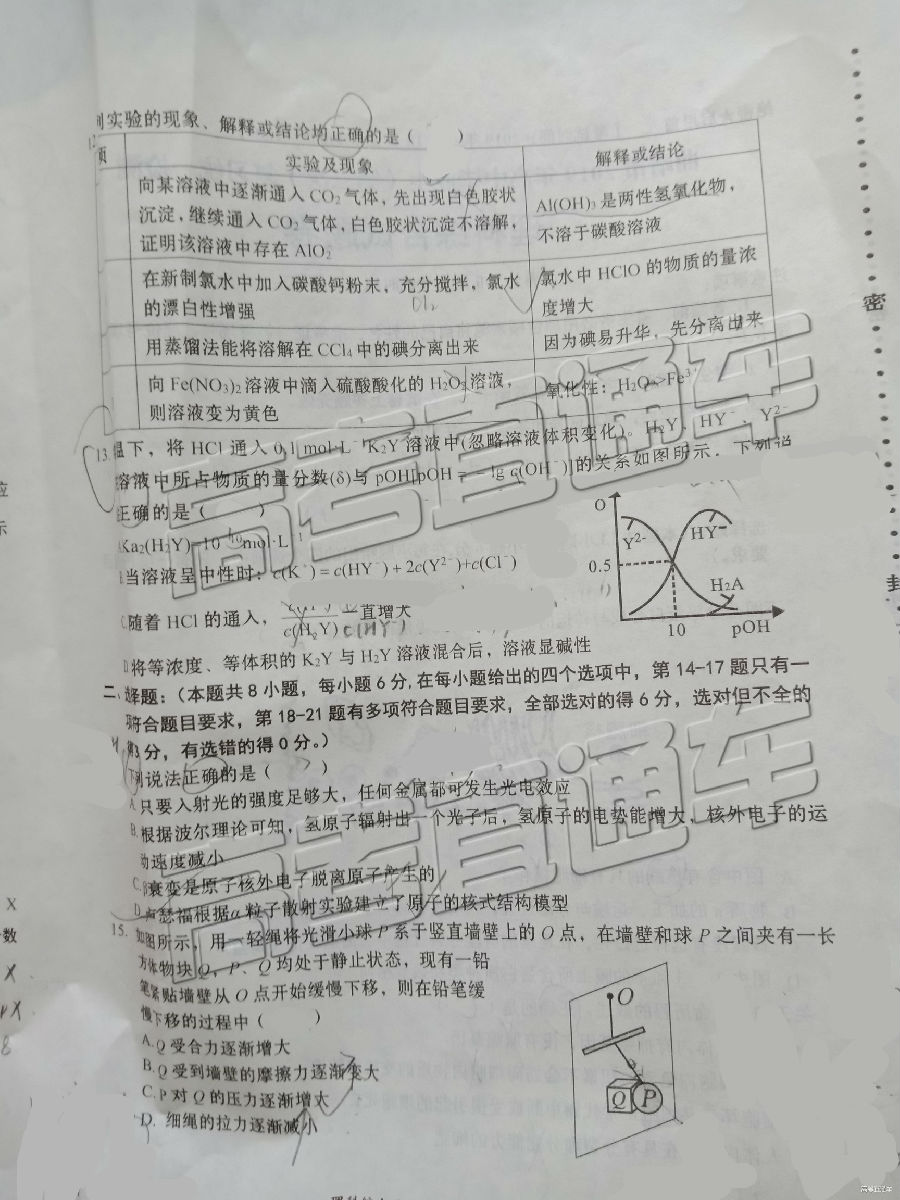 实验的现象、解释或结论均正确的是（ ）
实验及现象 解释或结论
向某溶液中逐渐通入 CO2 气体，先出现白色胶状
沉淀，继续通入 CO2 气体，白色胶状沉淀不溶解，
证明该溶液中存在 AlO2
Al(OH)3 是两性氢氧化物，
不溶于碳酸溶液
在新制氯水中加入碳酸钙粉末，充分搅拌，氯水
的漂白性增强
氯水中 HClO 的物质的量浓
度增大
用蒸馏法能将溶解在 CCl4 中的碘分离出来
因为碘易升华，先分离出来
向 Fe(NO3)2 溶液中滴入硫酸酸化的 H2O2 溶液，
则溶液变为黄色
氧化性：H2O2>Fe3+
密
13.温下，将 HCl 通入 0.1 mol·L-1K2Y 溶液中(忽略溶液体积变化)。H2Y、HY-、Y2-
溶液中所占物质的量分数(δ)与 pOH[pOH=-lg c(OH-)]的关系如图所示．下列说
正确的是（ ）
Ka2(H2Y)=10 mol·L-1
当溶液呈中性时：c(K+)=c(HY-)+2c(Y2-)+c(Cl-)
C.随着 HCl 的通入，
c(H2Y) c(HY-)
一直增大
D.将等浓度、等体积的 K2Y 与 H2Y 溶液混合后，溶液显碱性
O
Y2-
HY-
0.5
H2A
10
pOH
封
二、选择题:（本题共 8 小题，每小题 6 分,在每小题给出的四个选项中，第 14-17 题只有一
项符合题目要求，第 18-21 题有多项符合题目要求，全部选对的得 6 分，选对但不全的
得3 分，有选错的得 0 分。）
下列说法正确的是（ ）
A.只要入射光的强度足够大，任何金属都可发生光电效应
B.根据波尔理论可知，氢原子辐射出一个光子后，氢原子的电势能增大，核外电子的运
动速度减小
C.β衰变是原子核外电子脱离原子产生的
D.卢瑟福根据α粒子散射实验建立了原子的核式结构模型
15. 如图所示，用一轻绳将光滑小球 P 系于竖直墙壁上的 O 点，在墙壁和球 P 之间夹有一长
方体物块 Q，P、Q 均处于静止状态，现有一铅
笔紧贴墙壁从 O 点开始缓慢下移，则在铅笔缓
慢下移的过程中（ ）
A.Q 受合力逐渐增大
B.Q 受到墙壁的摩擦力逐渐变大
C.P 对 Q 的压力逐渐增大
D. 细绳的拉力逐渐减小
O
Q
P
高考直通车
高考直通车